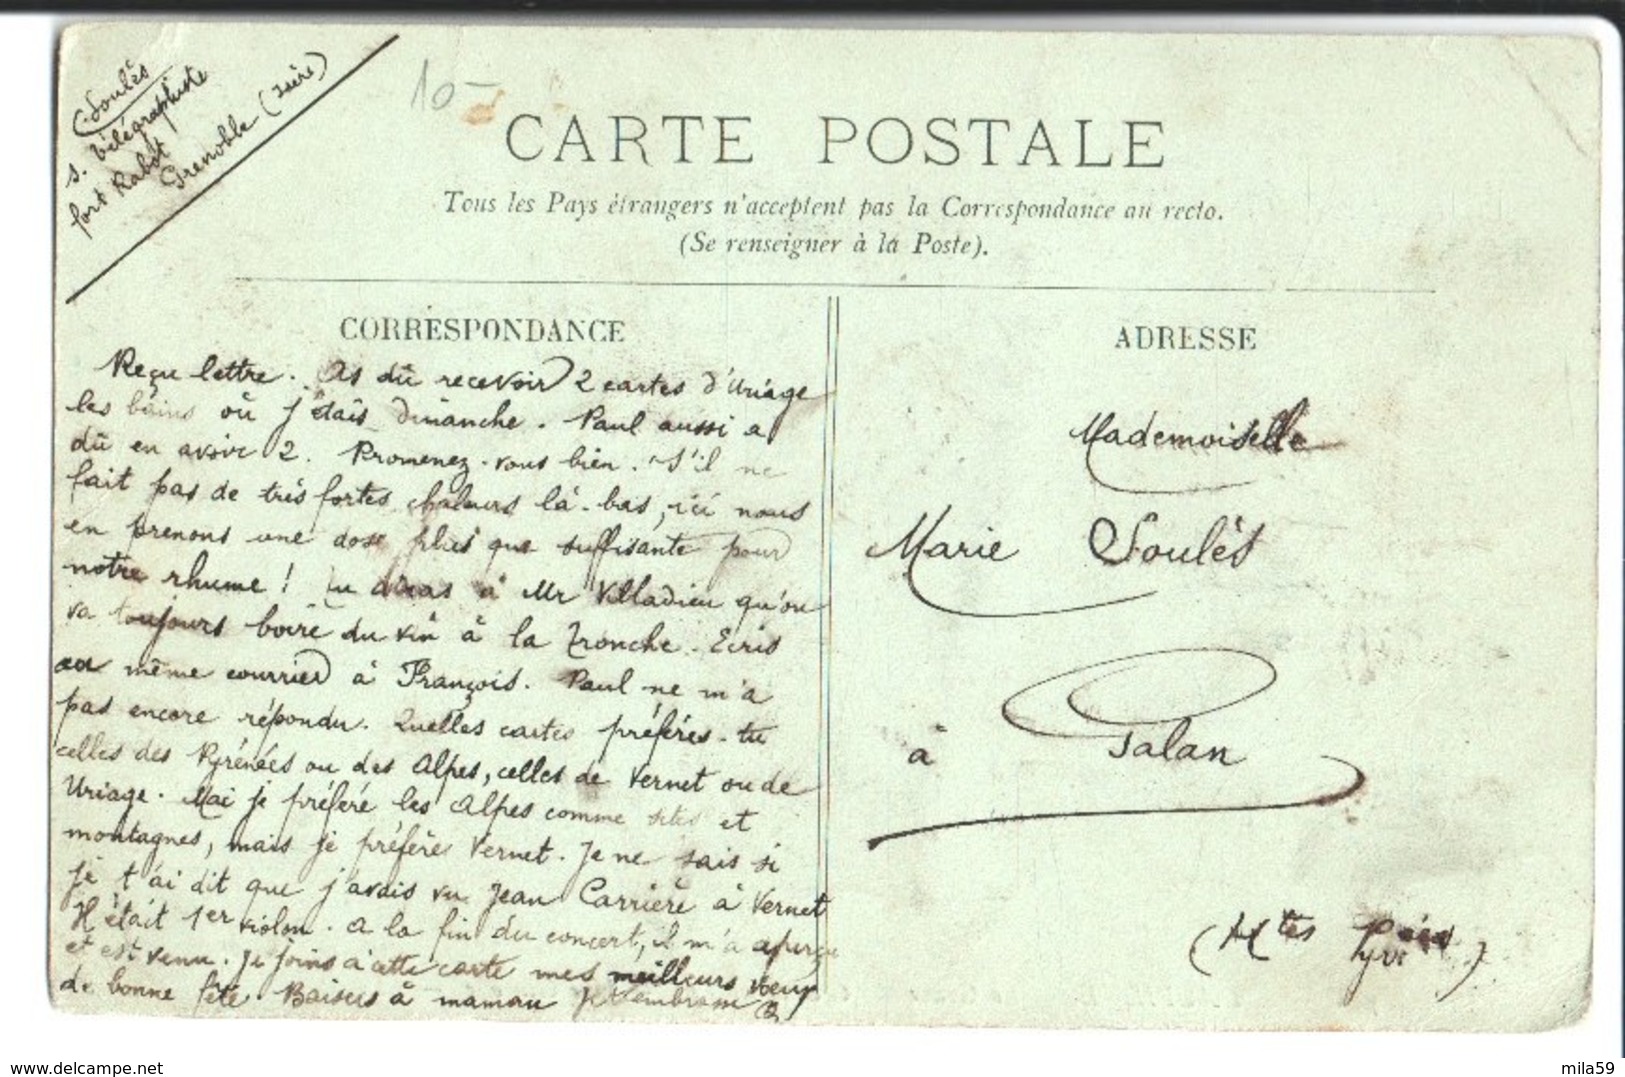 C. Soulès
s. télégraphiste
fort Rabot
Grenoble (Isère)
10-
CARTE POSTALE
Tous les Pays étrangers n'acceptent pas la Correspondance au recto.
(Se renseigner à la Poste).
CORRESPONDANCE
Reçu lettre. As dû recevoir 2 cartes d'Uriage
les bains où j'étais dimanche. Paul aussi a
dû en avoir 2. Promenez-vous bien. S'il ne
fait pas de très fortes chaleurs là-bas, ici nous
en prenons une dose plus que suffisante pour
notre rhume! Tu diras à Mr Villadieu qu'on
va toujours boire du vin à la Tronche. Ecris
au même courrier à François. Paul ne m'a
pas encore répondu. Quelles cartes préfères-tu
celles des Pyrénées ou des Alpes, celles de Vernet ou de
Uriage. Moi je préfère les Alpes comme sites et
montagnes, mais je préfère Vernet. Je ne sais si
je t'ai dit que j'avais vu Jean Carrière à Vernet
Il était 1er violon. A la fin du concert, il m'a aperçu
et est venu. Je joins à cette carte mes meilleurs voeux
de bonne fête. Baisers à maman Je t'embrasse
ADRESSE
Mademoiselle
Marie Soulès
à Galan
(Htes Pyrénées)
delcampe.net
mila59